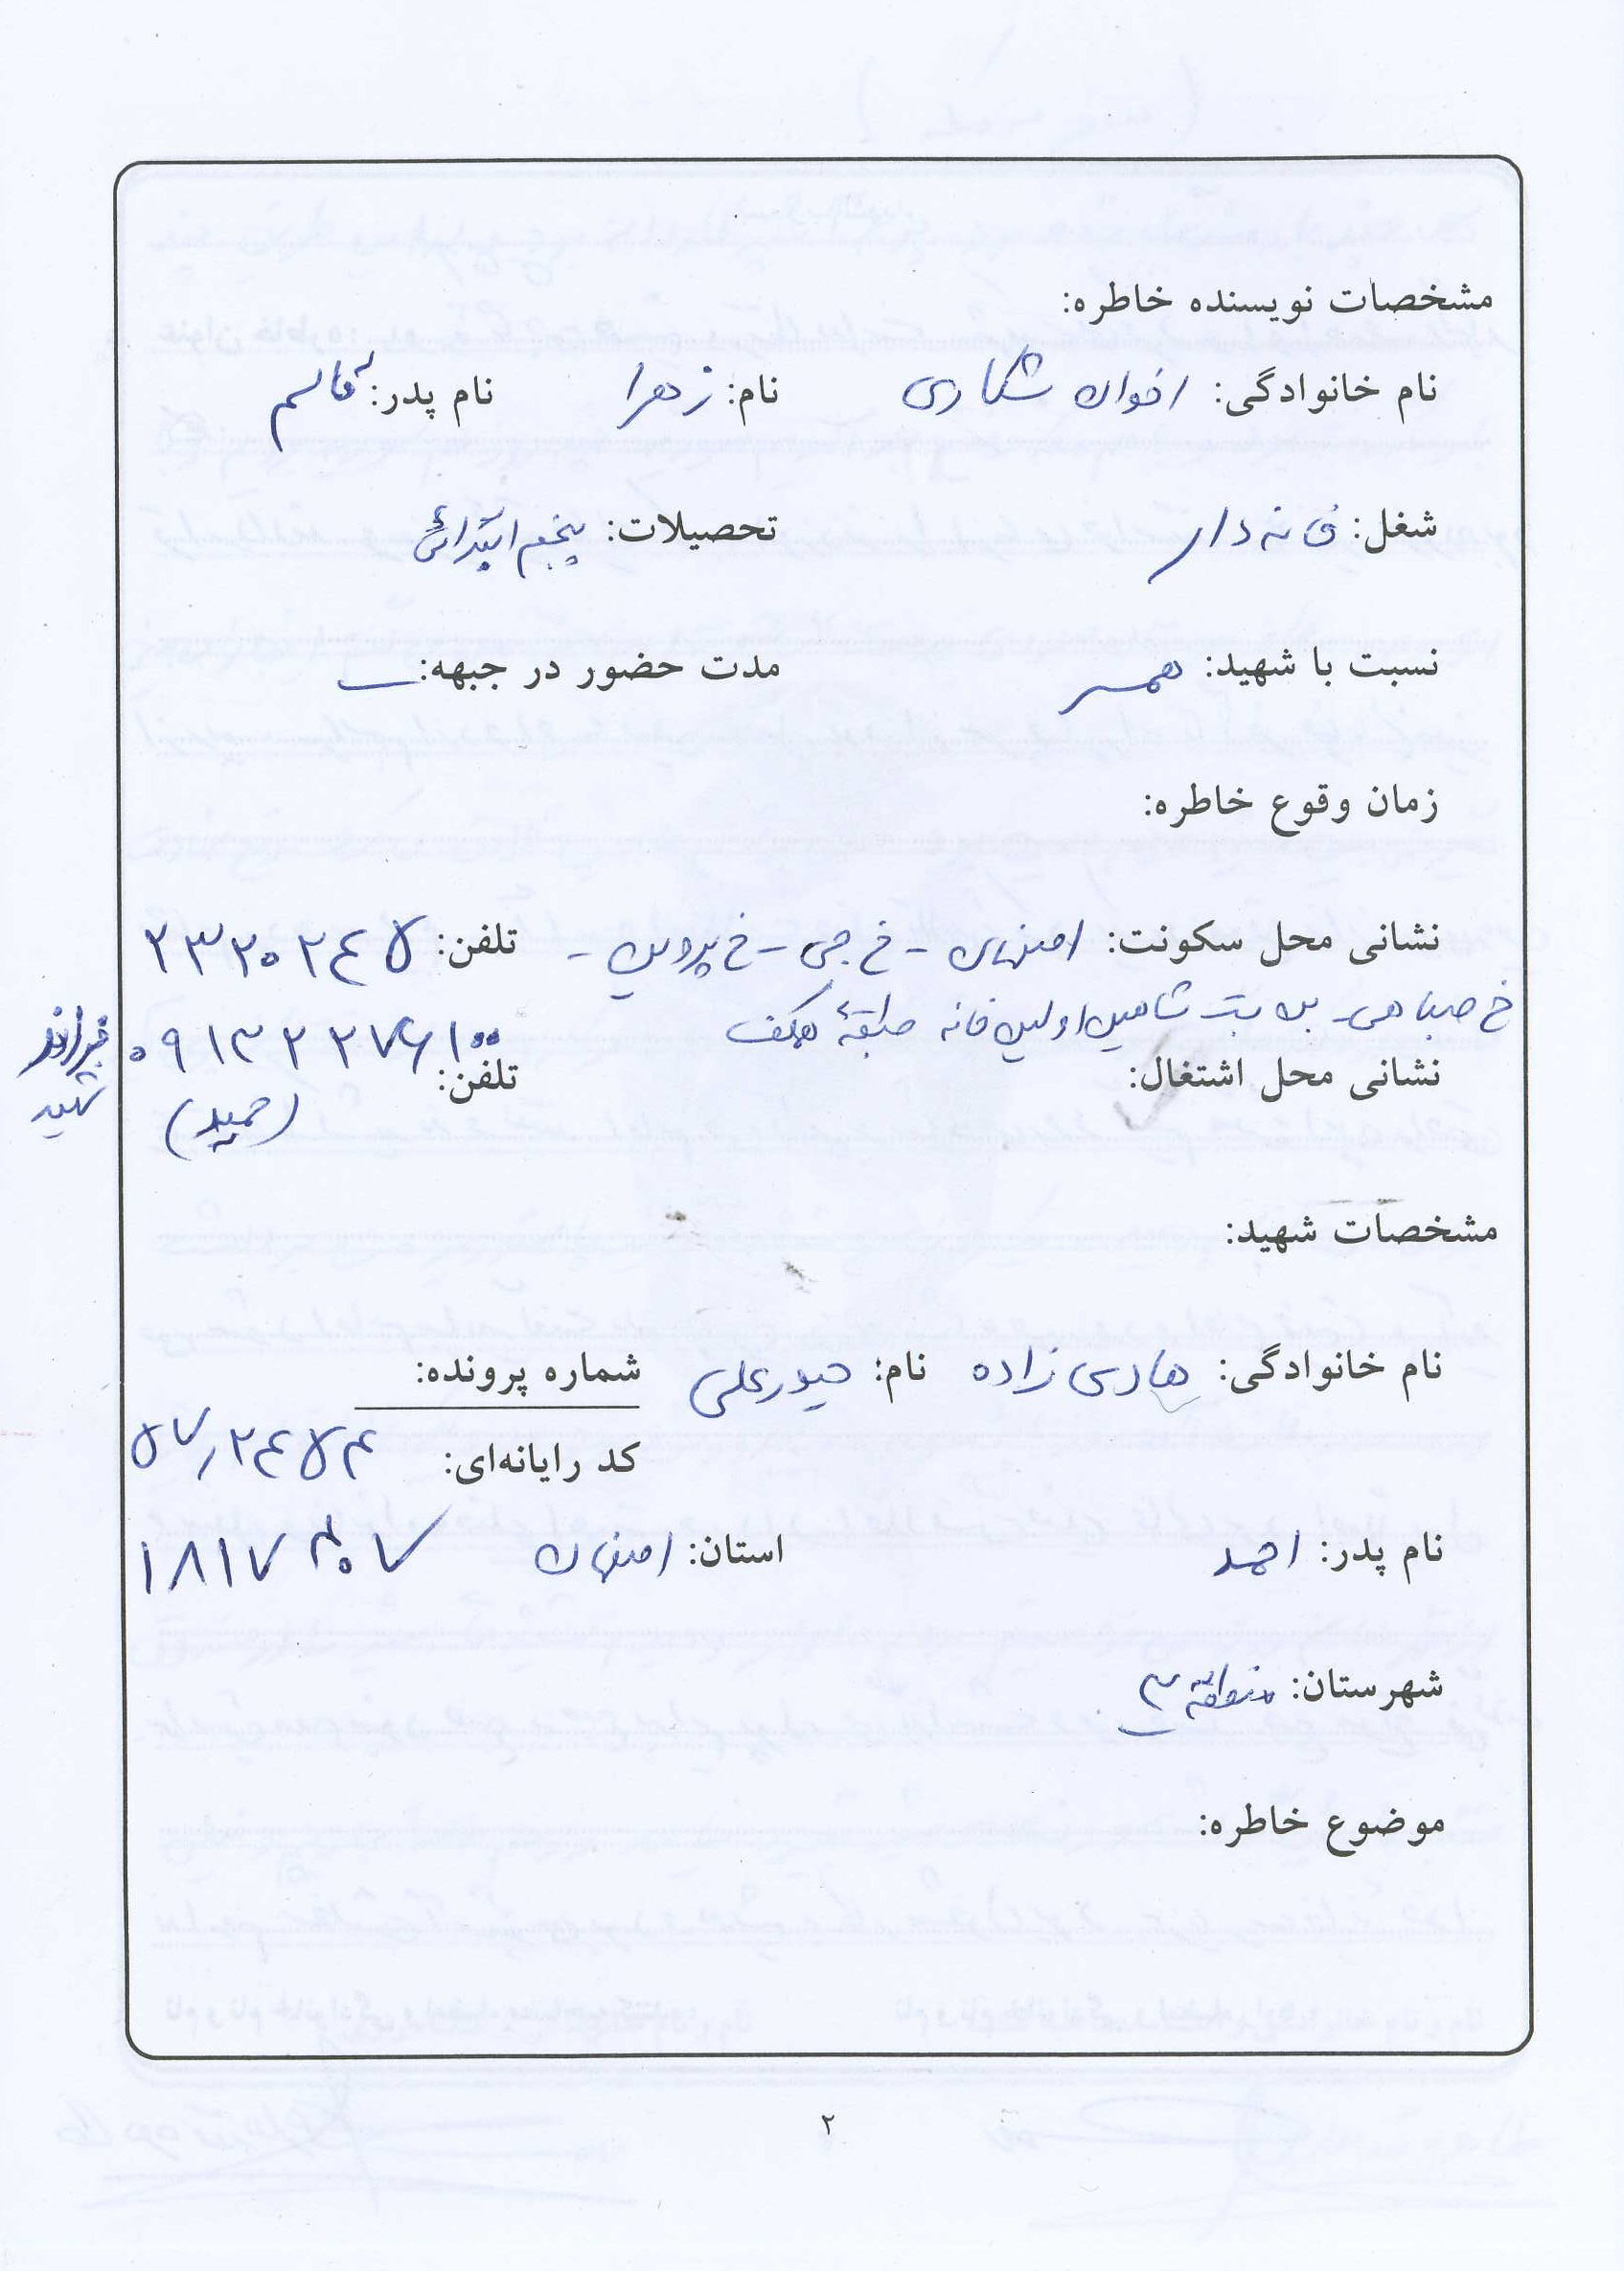 مشخصات نویسنده خاطره:
نام خانوادگی: اخوان شکاری نام: زهرا نام پدر: قاسم
شغل: خانه دار تحصیلات: پنجم ابتدائی
نسبت با شهید: همسر مدت حضور در جبهه: ــ
زمان وقوع خاطره:
نشانی محل سکونت: اصفهان - خ جی - خ پروین - تلفن: ۲۳۲۰۲۴۵
خ صباحی - بن بست شاهین اولین خانه طبقهٔ همکف ۰۹۱۳۲۲۷۶۱۰۰ فرزند شهید
نشانی محل اشتغال: تلفن: (حمید)
مشخصات شهید:
نام خانوادگی: هادی زاده نام: حیدرعلی شماره پرونده:
کد رایانه‌ای: ۵۷/۲۴۵۴
نام پدر: احمد استان: اصفهان ۱۸۱۷۳۰۷
شهرستان: منطقه ۳
موضوع خاطره:
۲